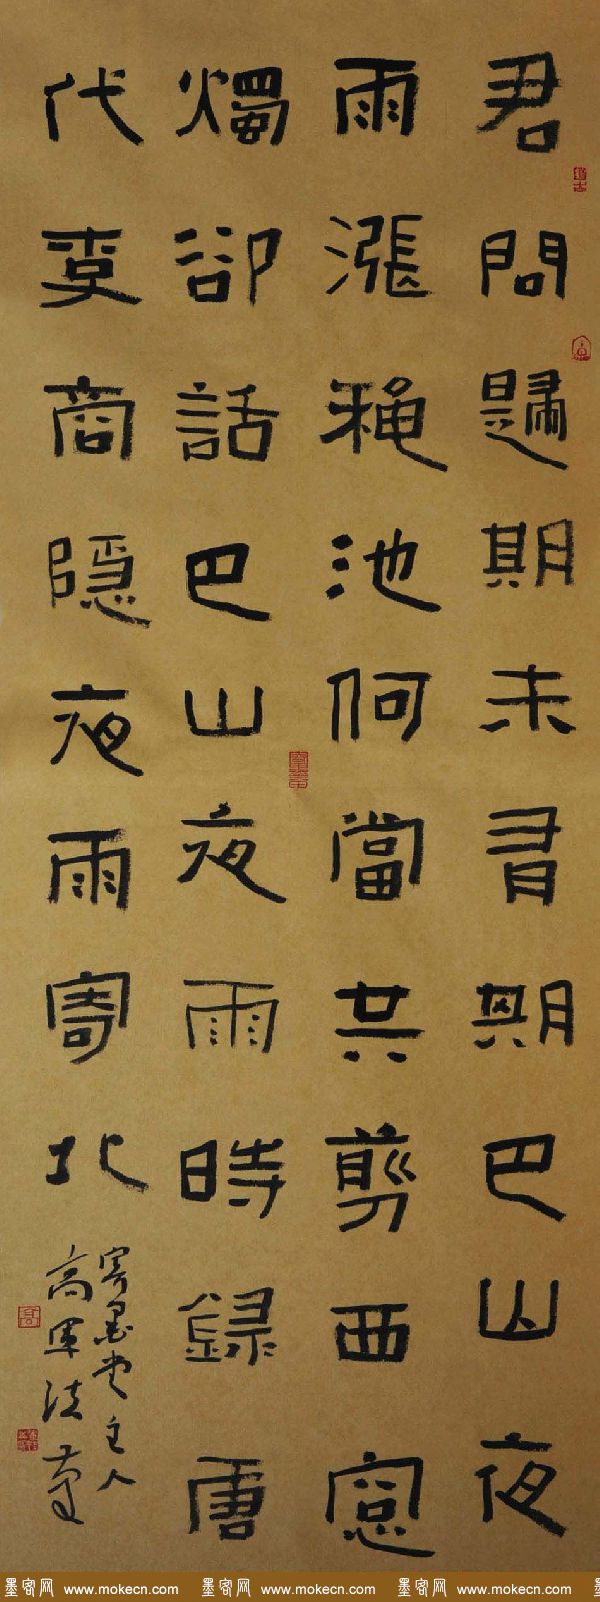 君問歸期未有期巴山夜
雨漲穐池何當共剪西窻
燭卻話巴山夜雨時錄唐
代李商隱夜雨寄北
寄墨堂主人
高軍法
墨客网 www.mokecn.com 墨客网 www.mokecn.com 墨客网 www.mokecn.com